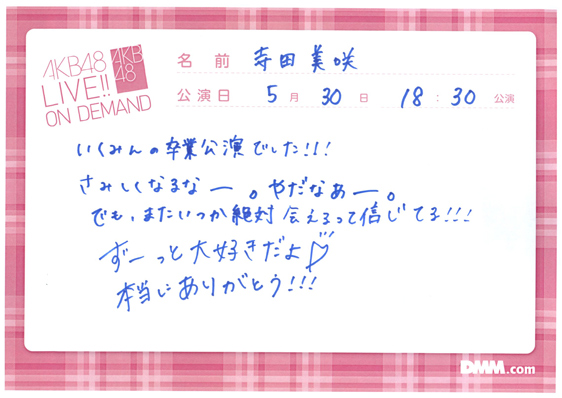 AKB48
LIVE!!
ON DEMAND
AKB
48
名前 寺田美咲
公演日 5月30日 18:30公演
いくみんの卒業公演でした!!!
さみしくなるなー。やだなぁー。
でも、またいつか絶対会えるって信じてる!!!
ずーっと大好きだよ♡
本当にありがとう!!!
DMM.com